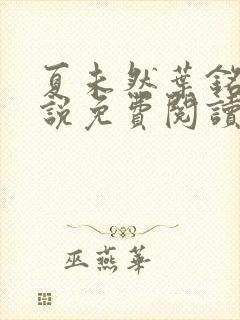 夏未然葉銘
說免費閱讀
巫燕華